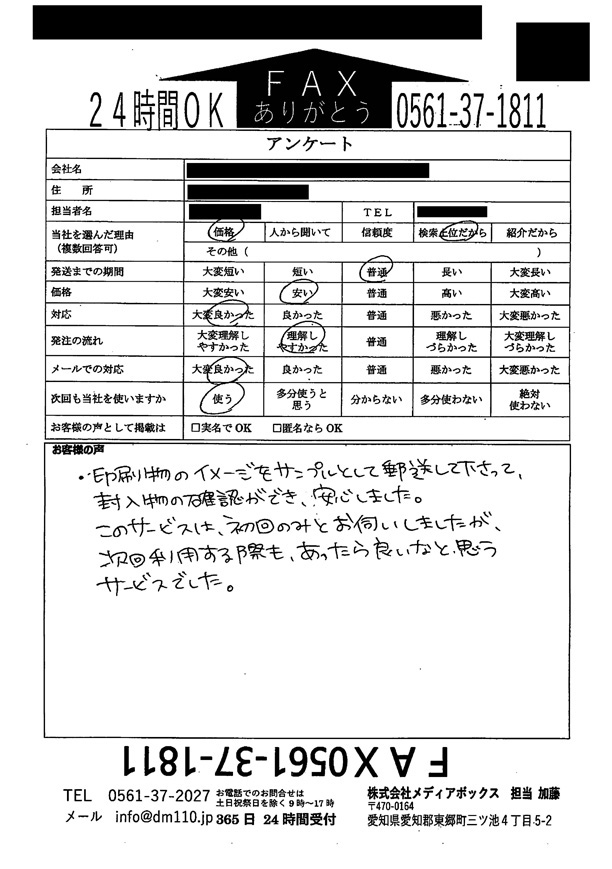 FAX
ありがとう
24時間OK
0561-37-1811
アンケート
会社名
住 所
担当者名 TEL
当社を選んだ理由（複数回答可） 価格 人から聞いて 信頼度 検索上位だから 紹介だから
その他（ ）
発送までの期間 大変短い 短い 普通 長い 大変長い
価格 大変安い 安い 普通 高い 大変高い
対応 大変良かった 良かった 普通 悪かった 大変悪かった
発注の流れ 大変理解しやすかった 理解しやすかった 普通 理解しづらかった 大変理解しづらかった
メールでの対応 大変良かった 良かった 普通 悪かった 大変悪かった
次回も当社を使いますか 使う 多分使うと思う 分からない 多分使わない 絶対使わない
お客様の声として掲載は □実名でOK □匿名ならOK
お客様の声
・印刷物のイメージをサンプルとして郵送して下さって、
封入物の確認ができ、安心しました。
このサービスは、初回のみとお伺いしましたが、
次回利用する際も、あったら良いなと思う
サービスでした。
FAX0561-37-1811
TEL 0561-37-2027 お電話でのお問合せは
土日祝祭日を除く9時～17時
メール info@dm110.jp 365日 24時間受付
株式会社メディアボックス 担当 加藤
〒470-0164
愛知県愛知郡東郷町三ツ池4丁目5-2